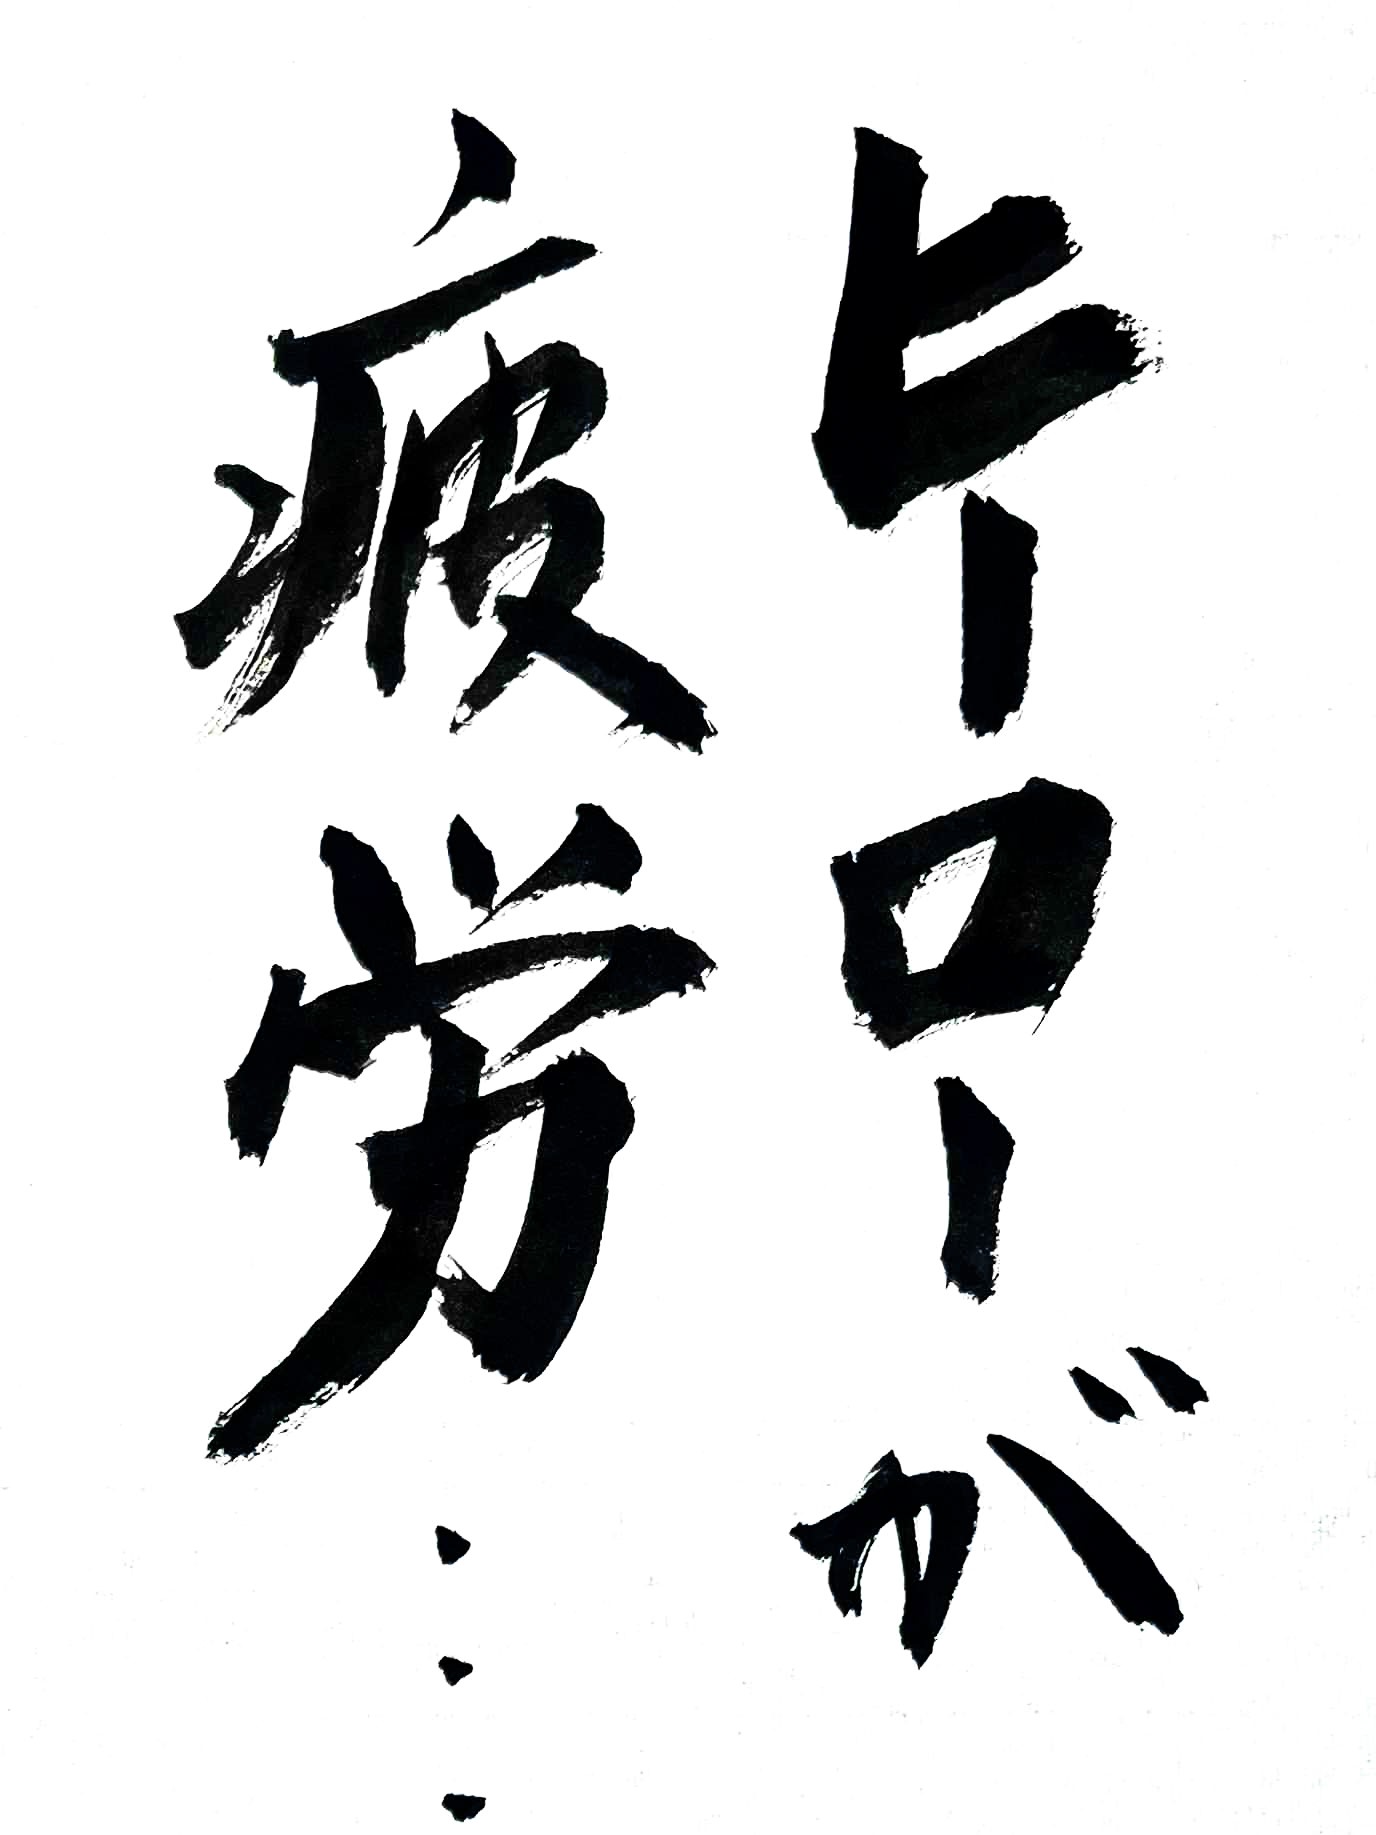 ヒーローが
疲労…